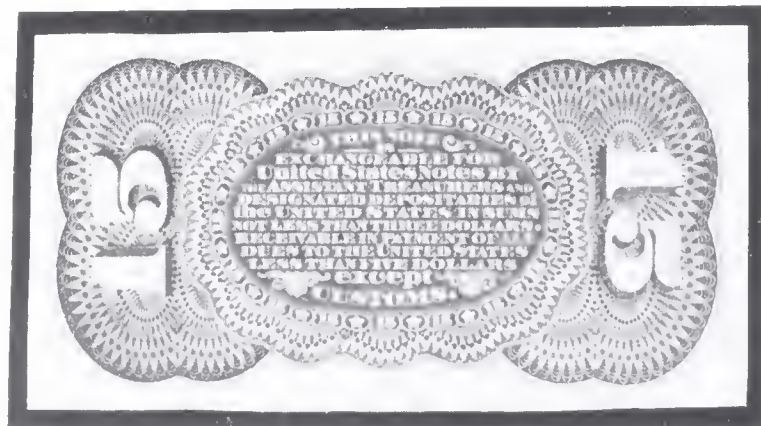 15
THIS NOTE
IS
EXCHANGEABLE FOR
United States Notes BY
THE ASSISTANT TREASURERS AND
DESIGNATED DEPOSITARIES of
the UNITED STATES IN SUMS
NOT LESS THAN THREE DOLLARS.
RECEIVABLE IN PAYMENT OF ALL
DUES TO THE UNITED STATES
LESS THAN FIVE DOLLARS
except
CUSTOMS.
15